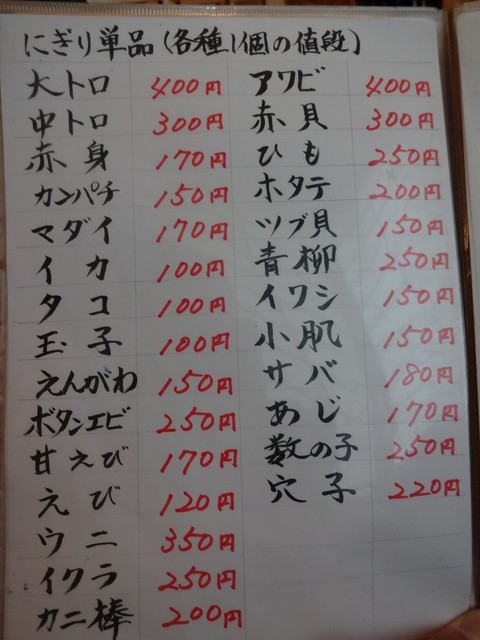 にぎり単品(各種1個の値段)
大トロ 400円
中トロ 300円
赤身 170円
カンパチ 150円
マダイ 170円
イカ 100円
タコ 100円
玉子 100円
えんがわ 150円
ボタンエビ 250円
甘えび 170円
えび 120円
ウニ 350円
イクラ 250円
カニ棒 200円
アワビ 400円
赤貝 300円
ひも 250円
ホタテ 200円
ツブ貝 150円
青柳 250円
イワシ 150円
小肌 150円
サバ 180円
あじ 170円
数の子 250円
穴子 220円